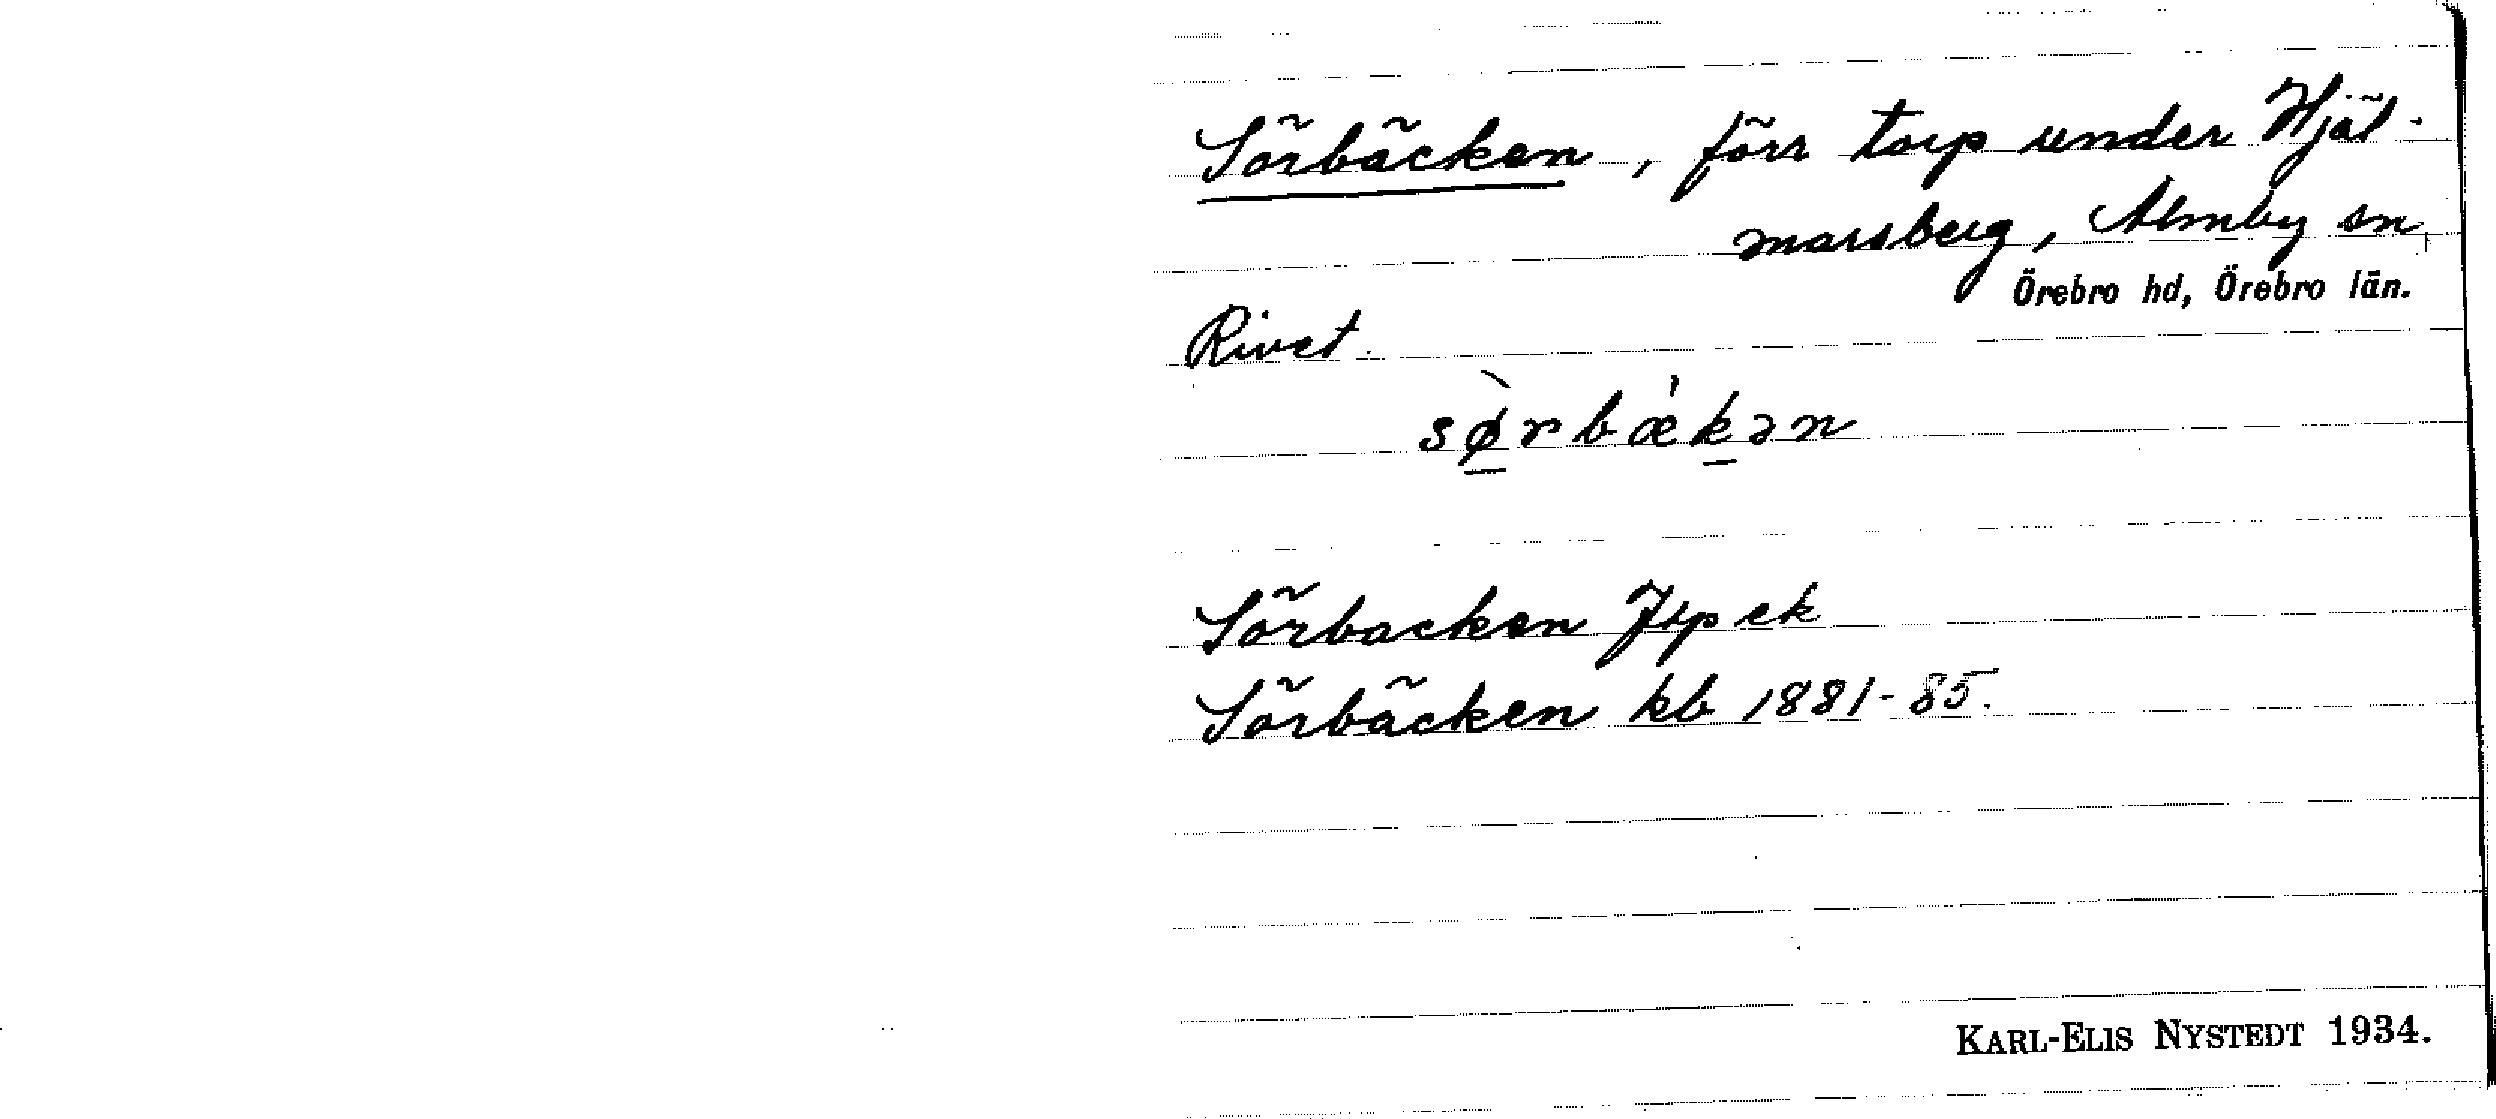 Sörbäcken, förr torp under Hjäl-
marsberg, Almby sn,
Örebro hd, Örebro län.
Rivet.
sø̀rbæ̀kən
Sörbacken Jsp ek
Sörbäcken kb 1881-85.
KARL-ELIS NYSTEDT 1934.